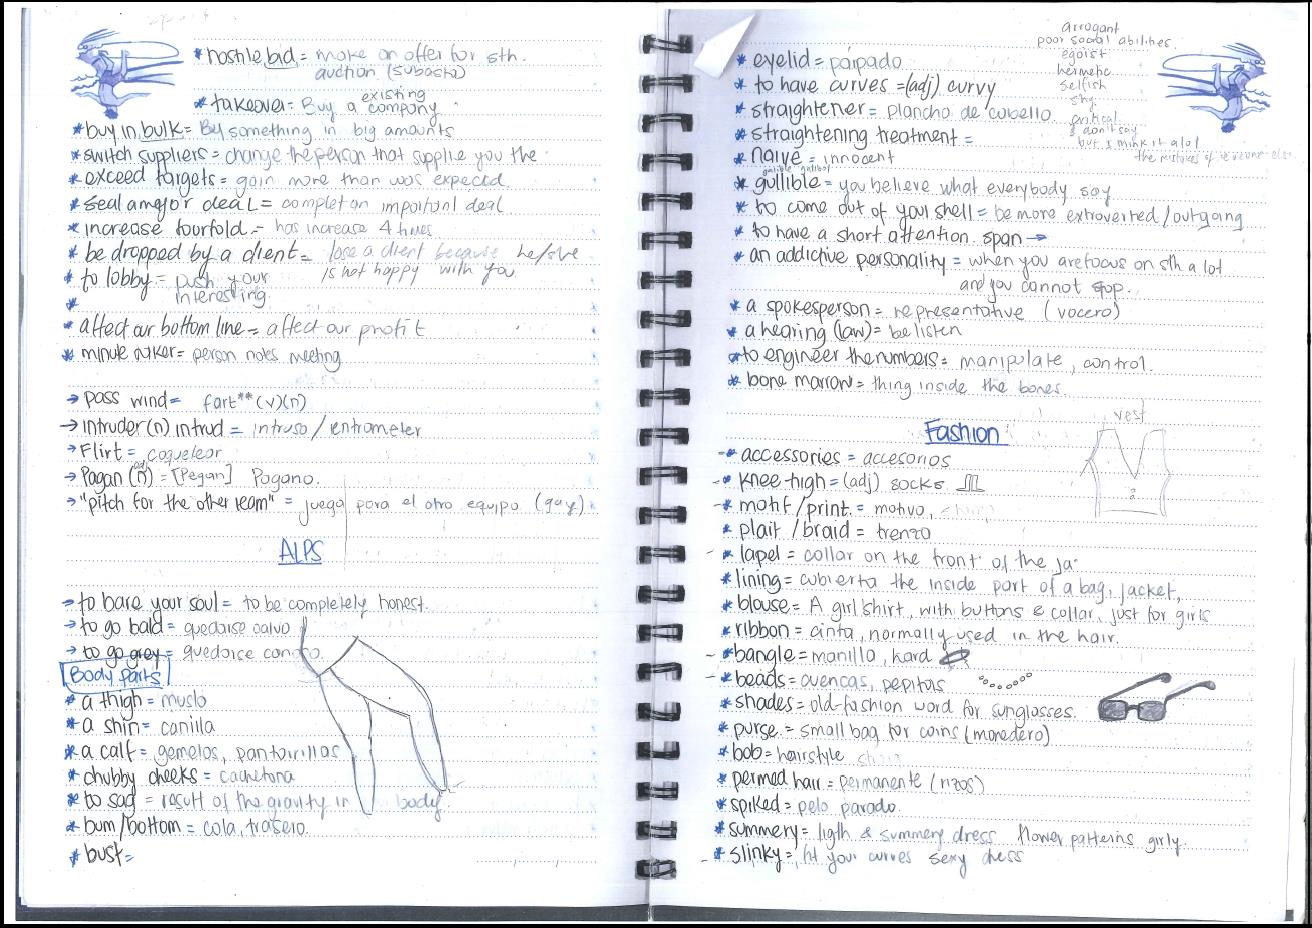 * hostile bid = make an offer for sth.
auction (subasta)
* takeover = Buy a existing company
* buy in bulk = By something in big amounts
* switch suppliers = change the person that supplie you the
* exceed targets = gain more than was expected.
* seal a major deal = complet an important deal
* increase fourfold = has increase 4 times
* be dropped by a client = lose a client because he/she
is not happy with you
* to lobby = push your
interesting.
*
* affect our bottom line = affect our profit
* minute taker = person notes meeting
→ pass wind = fart** (v)(n)
→ intruder (n) intrud = intruso / entrometer
→ Flirt = coquetear
→ Pagan (n) adj = [Pegan] Pagano.
→ "pitch for the other team" = juega para el otro equipo (gay).
ALPS
→ to bare your soul = to be completely honest.
→ to go bald = quedarse calvo
→ to go grey = quedarse canoso.
Body parts
* a thigh = muslo
* a shin = canilla
* a calf = gemelos, pantorrillas
* chubby cheeks = cachetona
* to sag = result of the gravity in body.
* bum/bottom = cola, trasero.
* bust =
arrogant
poor social abilities.
egoist
hermetic
selfish
shy
critical
but I think it a lot
* eyelid = párpado
* to have curves = (adj) curvy
* straightener = plancha de cabello
* straightening treatment =
* naive = innocent
* gullible = you believe what everybody say
* to come out of your shell = be more extroverted / outgoing
* to have a short attention span →
* an addictive personality = when you are focus on sth a lot
and you cannot stop.
* a spokesperson = representative (vocero)
* a hearing (law) = be listen
* to engineer the numbers = manipulate, control.
* bone marrow = thing inside the bones.
vest
Fashion
* accessories = accesorios
* knee-high = (adj) socks
* motif / print = motivo,
* plait / braid = trenza
* lapel = collar on the front of the ja
* lining = cubierta the inside part of a bag, jacket,
* blouse = A girl shirt, with buttons & collar, just for girls
* ribbon = cinta, normally used in the hair.
* bangle = manilla, hard
* beads = avencas, pepitas
* shades = old-fashion word for sunglasses.
* purse = small bag for coins (monedero)
* bob = hairstyle short
* permed hair = permanente (rizos)
* spiked = pelo parado.
* summery = ligth & summery dress flower patterns girly.
* slinky = fit your curves sexy dress